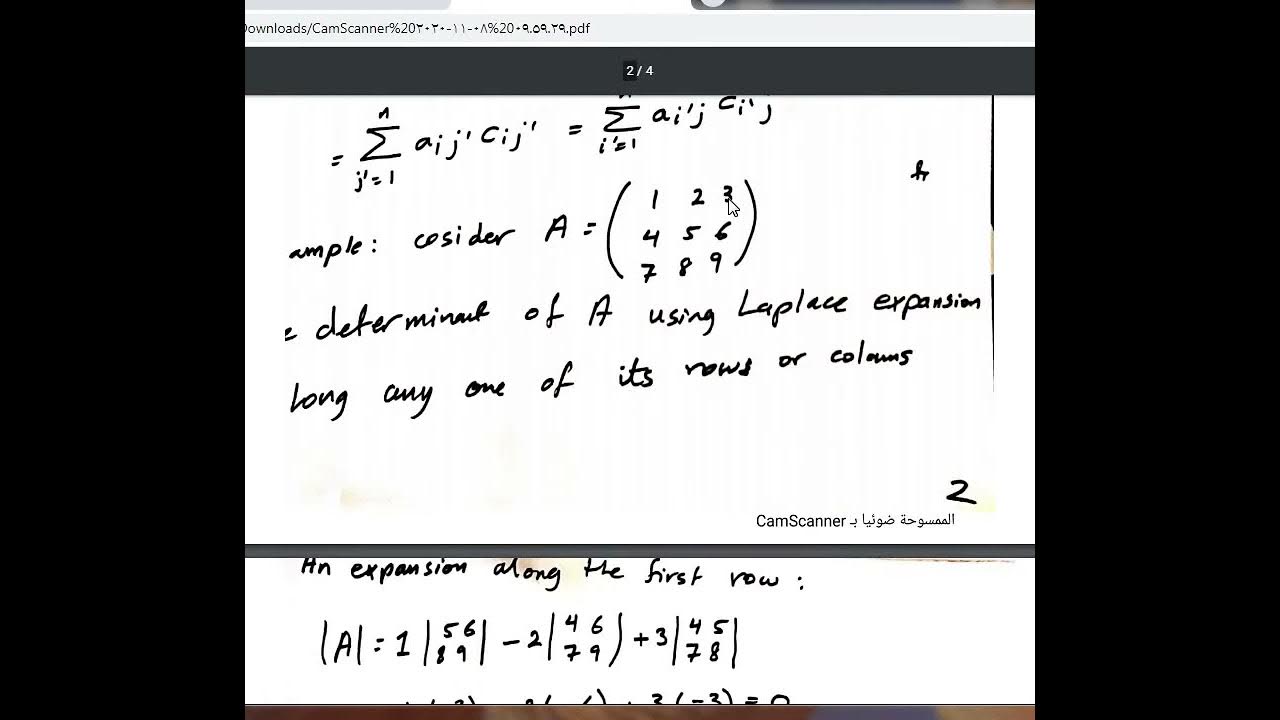 Downloads/CamScanner%20۲۰۲۰-۱۱-۰۸%20۰۹.۵۹.۲۹.pdf
2 / 4
= n Σ j'=1 aij' cij' = n Σ i'=1 ai'j ci'j
ample: cosider A = ( 1 2 3
4 5 6
7 8 9 )
determinant of A using Laplace expansion
long any one of its rows or coloums
2
الممسوحة ضوئيا بـ CamScanner
An expansion along the first row :
|A| = 1 |5 6 8 9| - 2 |4 6 7 9) + 3 |4 5 7 8|
3 (-3) = 0